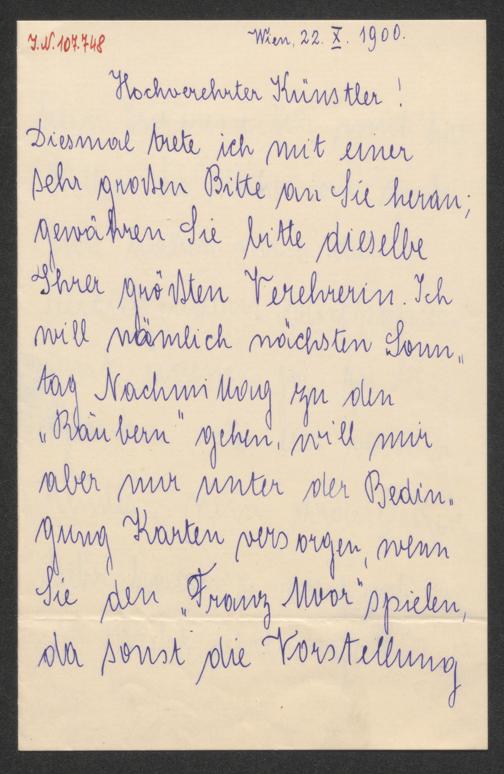 I.N. 107.748
Wien, 22. X. 1900.
Hochverehrter Künstler !
Diesmal trete ich mit einer
sehr großen Bitte an Sie heran;
gewähren Sie bitte dieselbe
Ihrer größten Verehrerin. Ich
will nämlich nächsten Sonn„
tag Nachmittag zu den
„Räubern“ gehen, will mir
aber nur unter der Bedin„
gung Karten versorgen, wenn
Sie den „Franz Moor“ spielen,
da sonst die Vorstellung